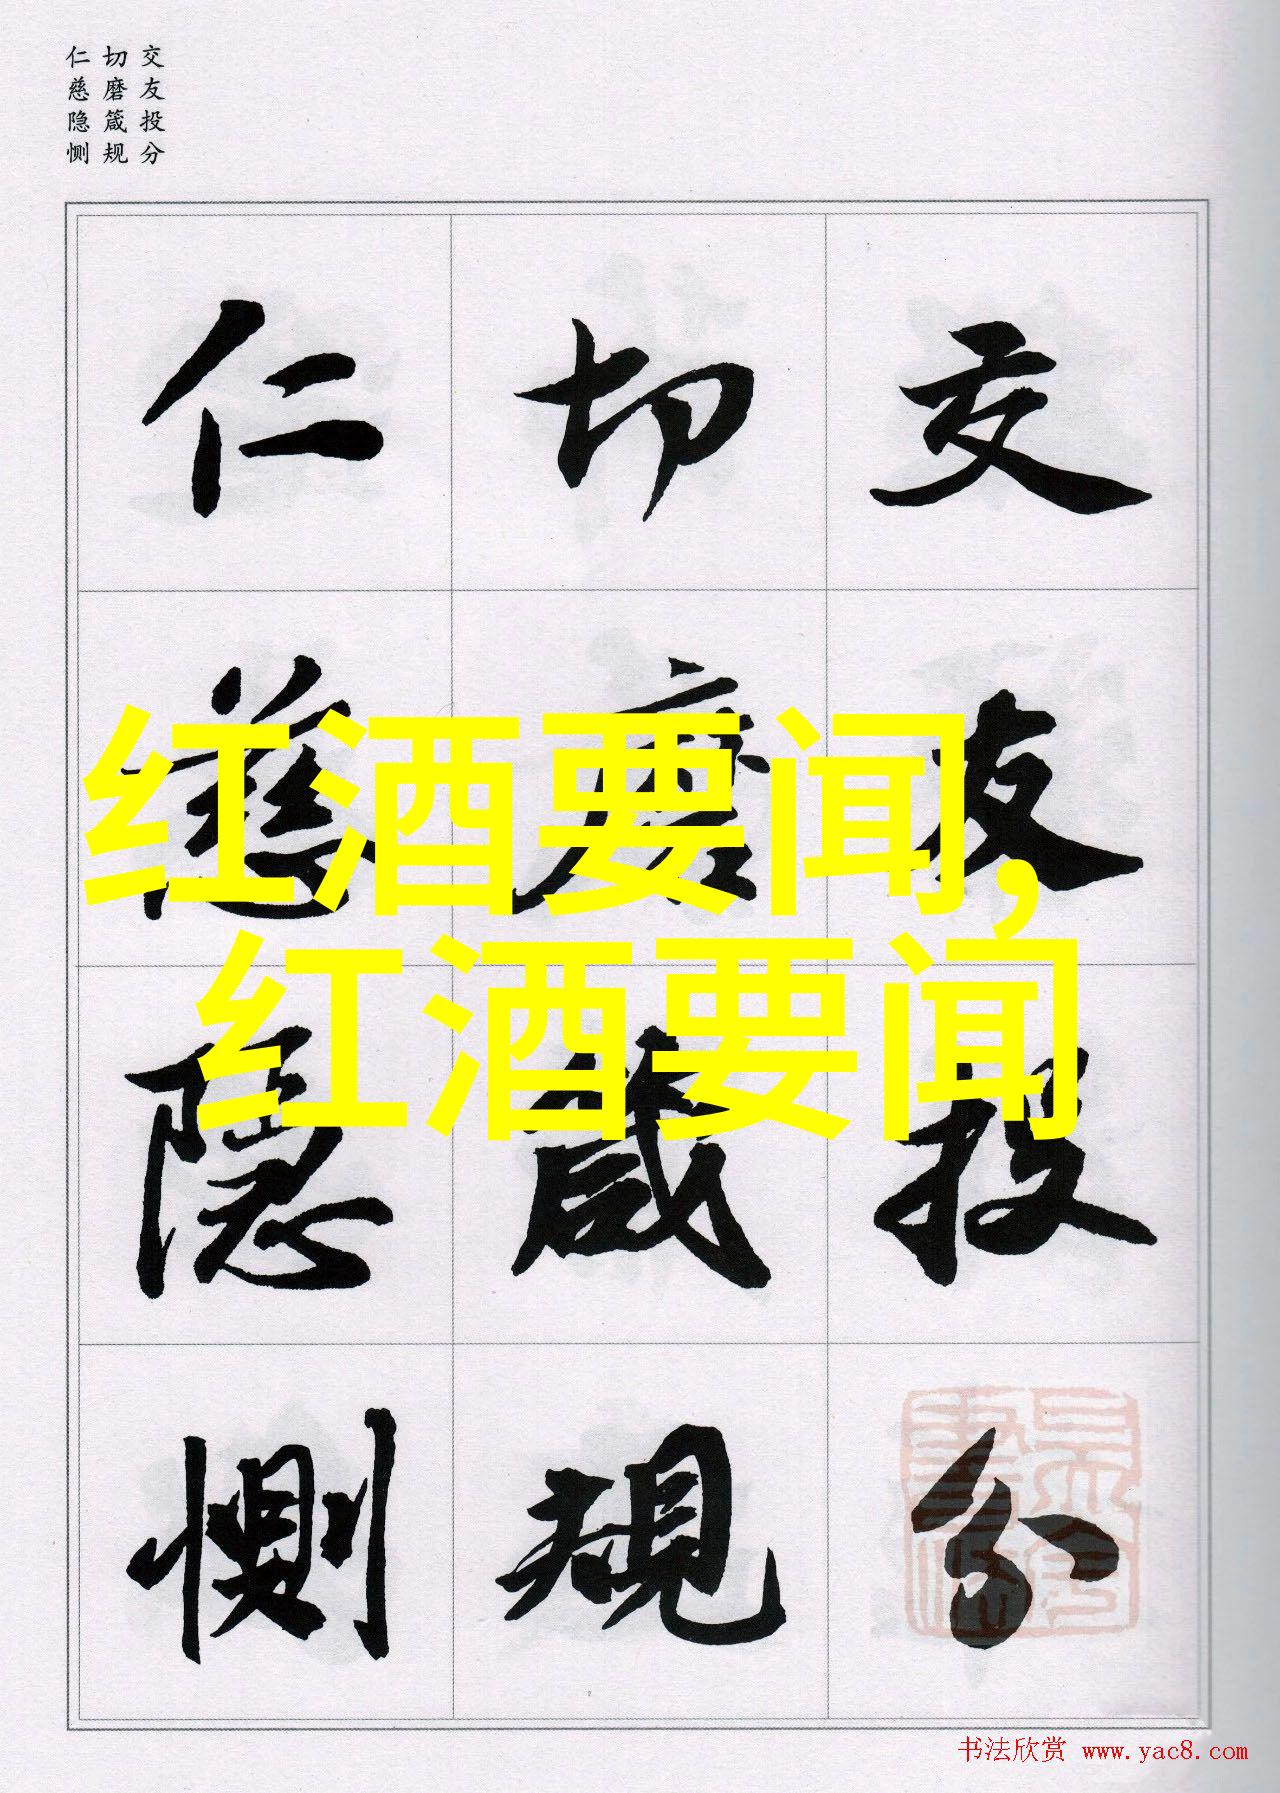 交友投分
切磨箴规
仁慈隐恻
交友投分
切磨箴规
仁慈隐恻
红酒要闻,
红酒要闻
书法欣赏 www.yac8.com